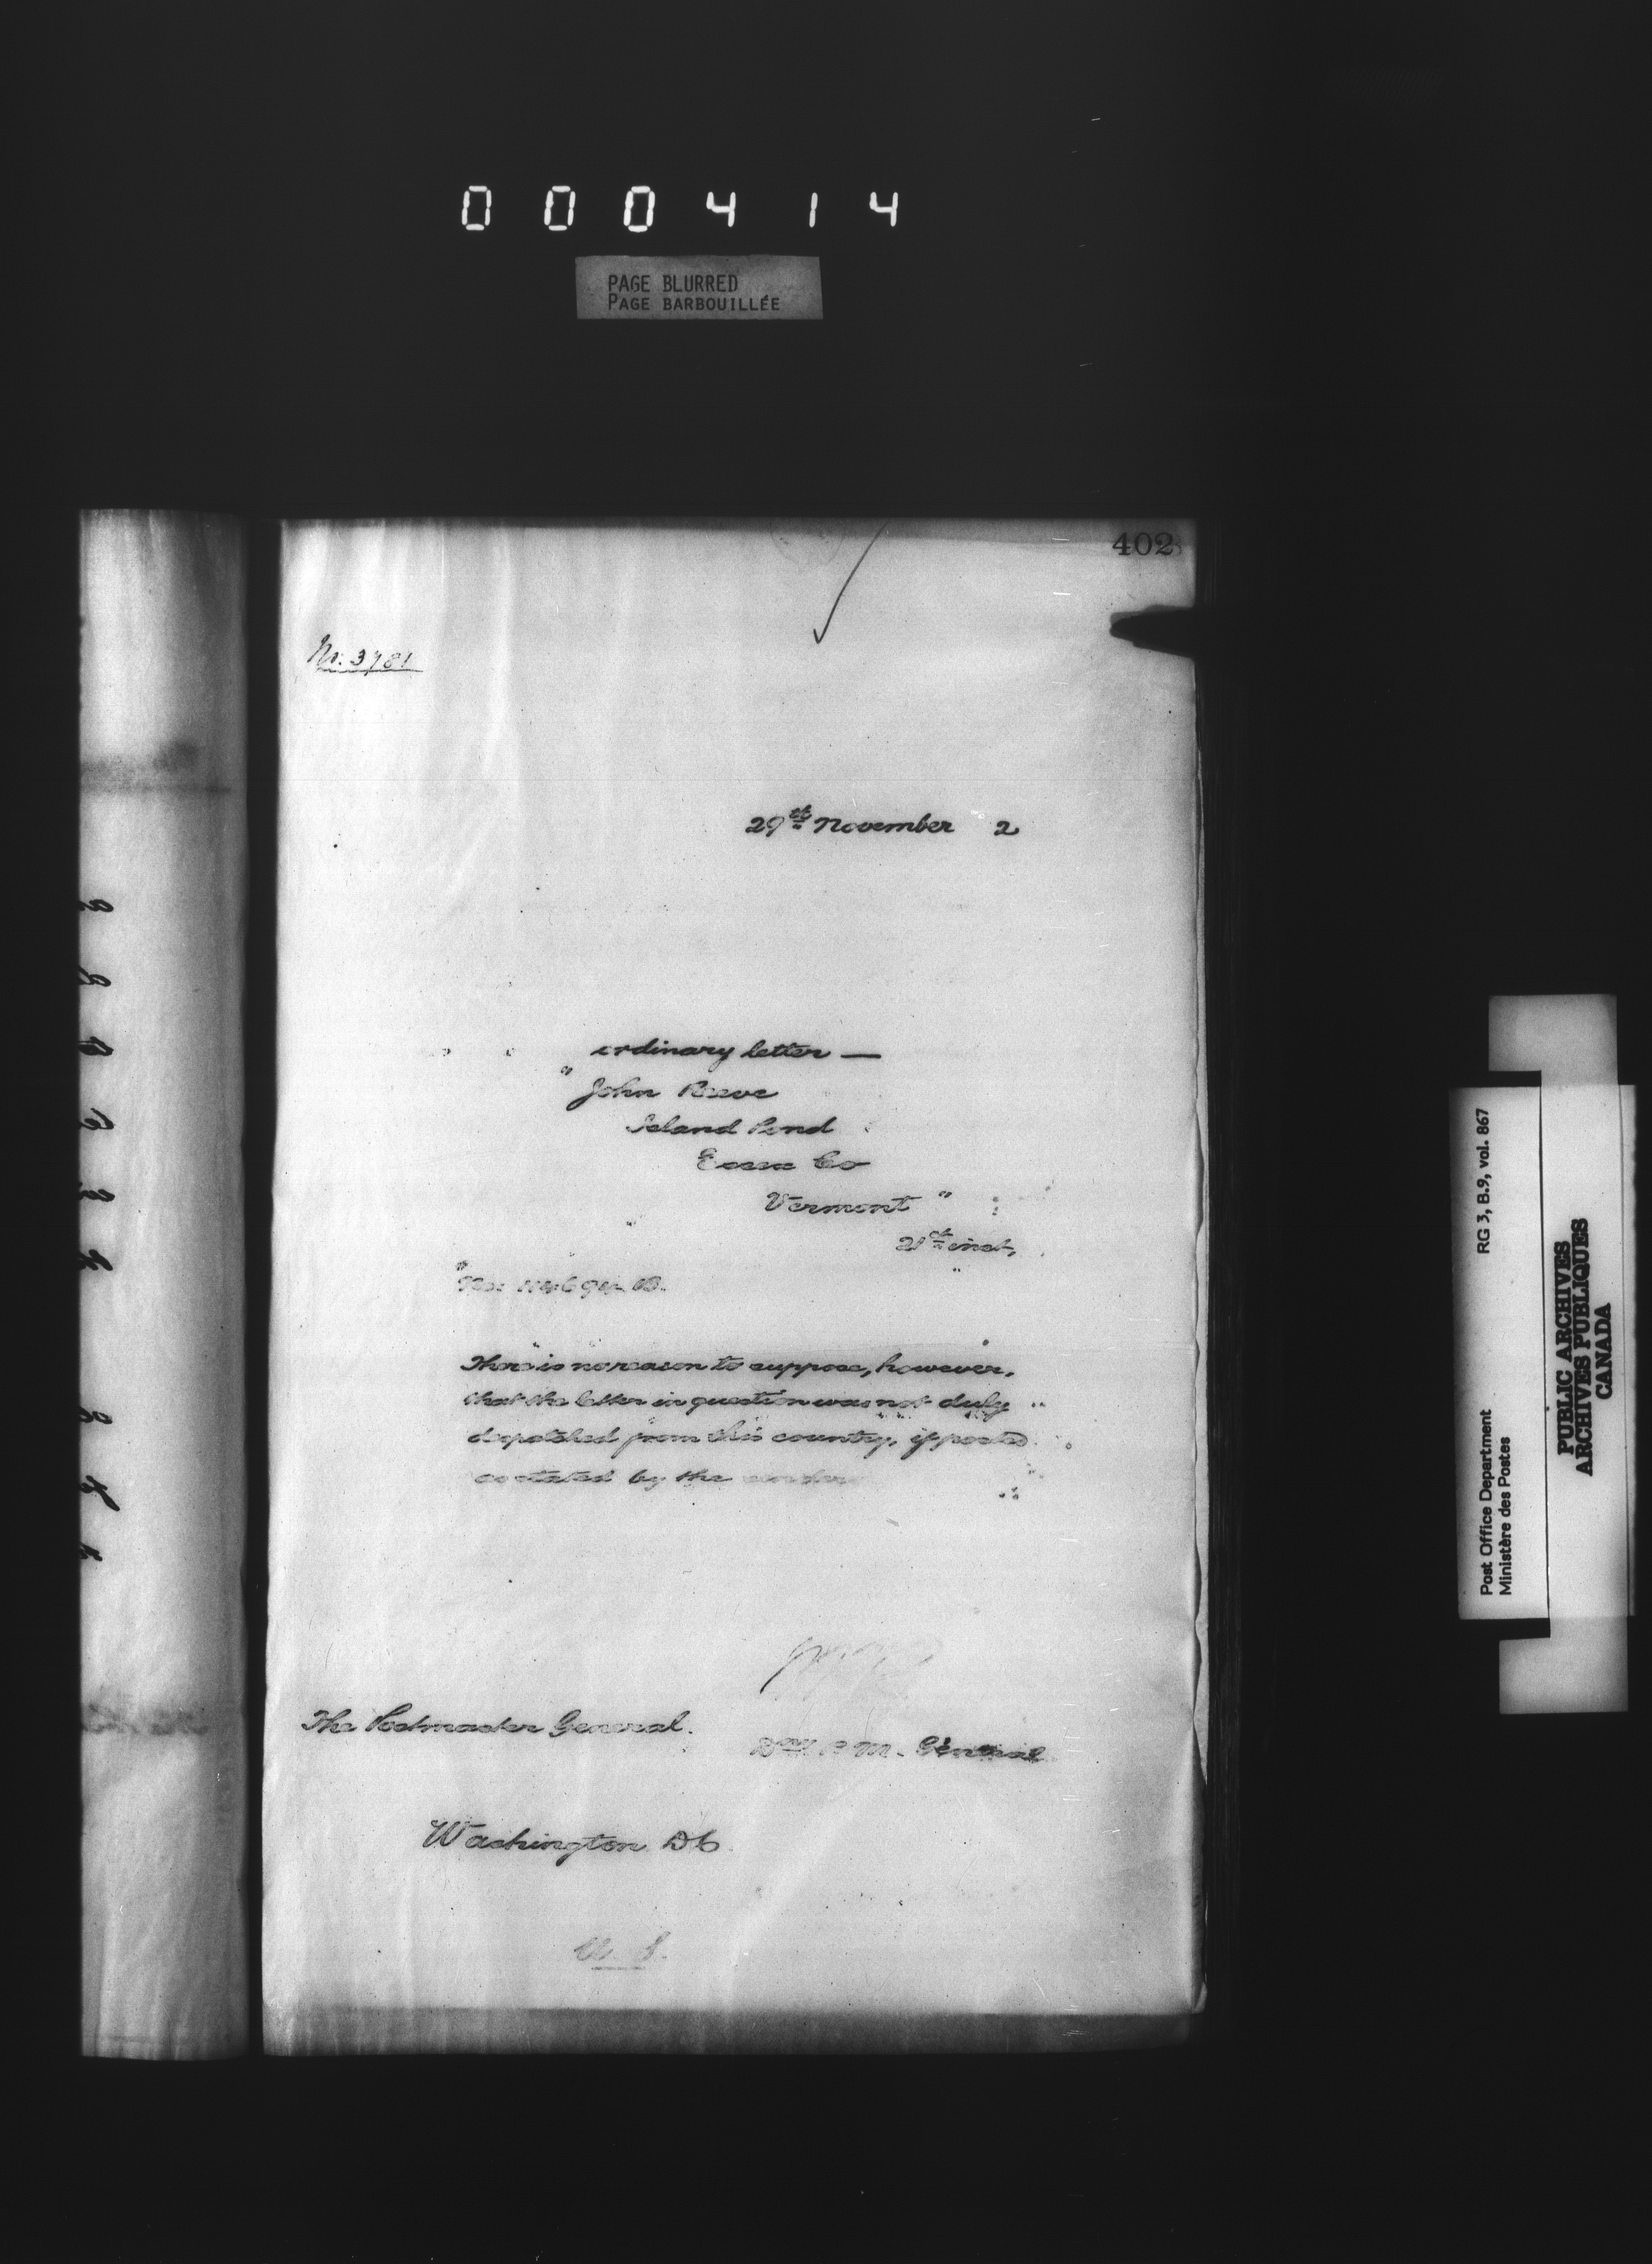 000414
PAGE BLURRED
PAGE BARBOUILLÉE
402
No. 3781
29th November 2
ordinary letter —
" John Reeve
Island Pond
Essex Co
Vermont "
21st inst,
There is no reason to suppose, however,
that the letter in question was not duly
despatched from this country, if posted
as stated by the sender
The Postmaster General.
Dep. P. M. General
Washington DC
RG 3, B.9, vol. 867
Post Office Department
Ministère des Postes
PUBLIC ARCHIVES
ARCHIVES PUBLIQUES
CANADA